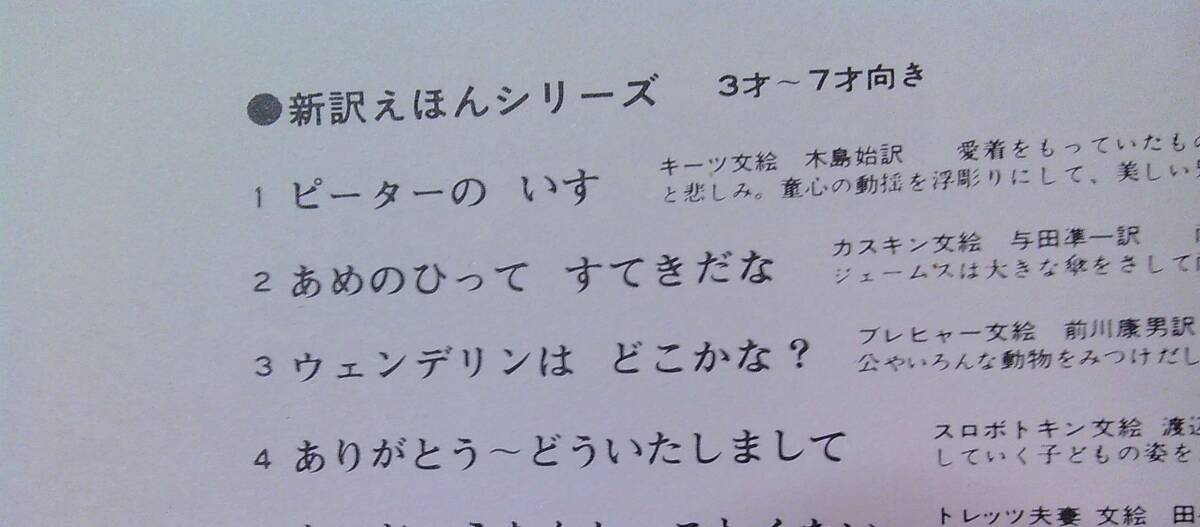 ●新訳えほんシリーズ 3才～7才向き
1 ピーターの いす キーツ文絵 木島始訳 愛着をもっていたもの
と悲しみ。童心の動揺を浮彫りにして、美しい
2 あめのひって すてきだな カスキン文絵 与田準一訳
ジェームスは大きな傘をさして
3 ウェンデリンは どこかな？ ブレヒャー文絵 前川康男訳
公やいろんな動物をみつけだし
4 ありがとう～どういたしまして スロボトキン文絵 渡辺
していく子どもの姿を
トレッツ夫妻 文絵 田